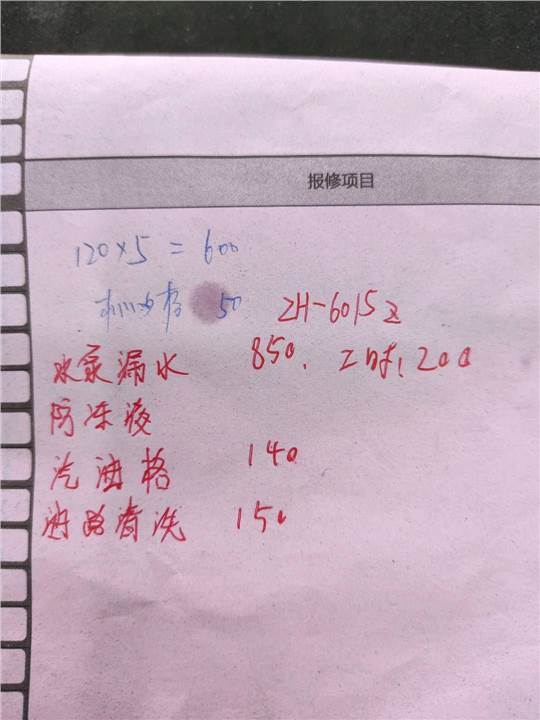 报修项目
120×5=600
机油格 50 ZH-6015z
水泵漏水 850. 工时:200
防冻液
汽油格 140
油路清洗 150